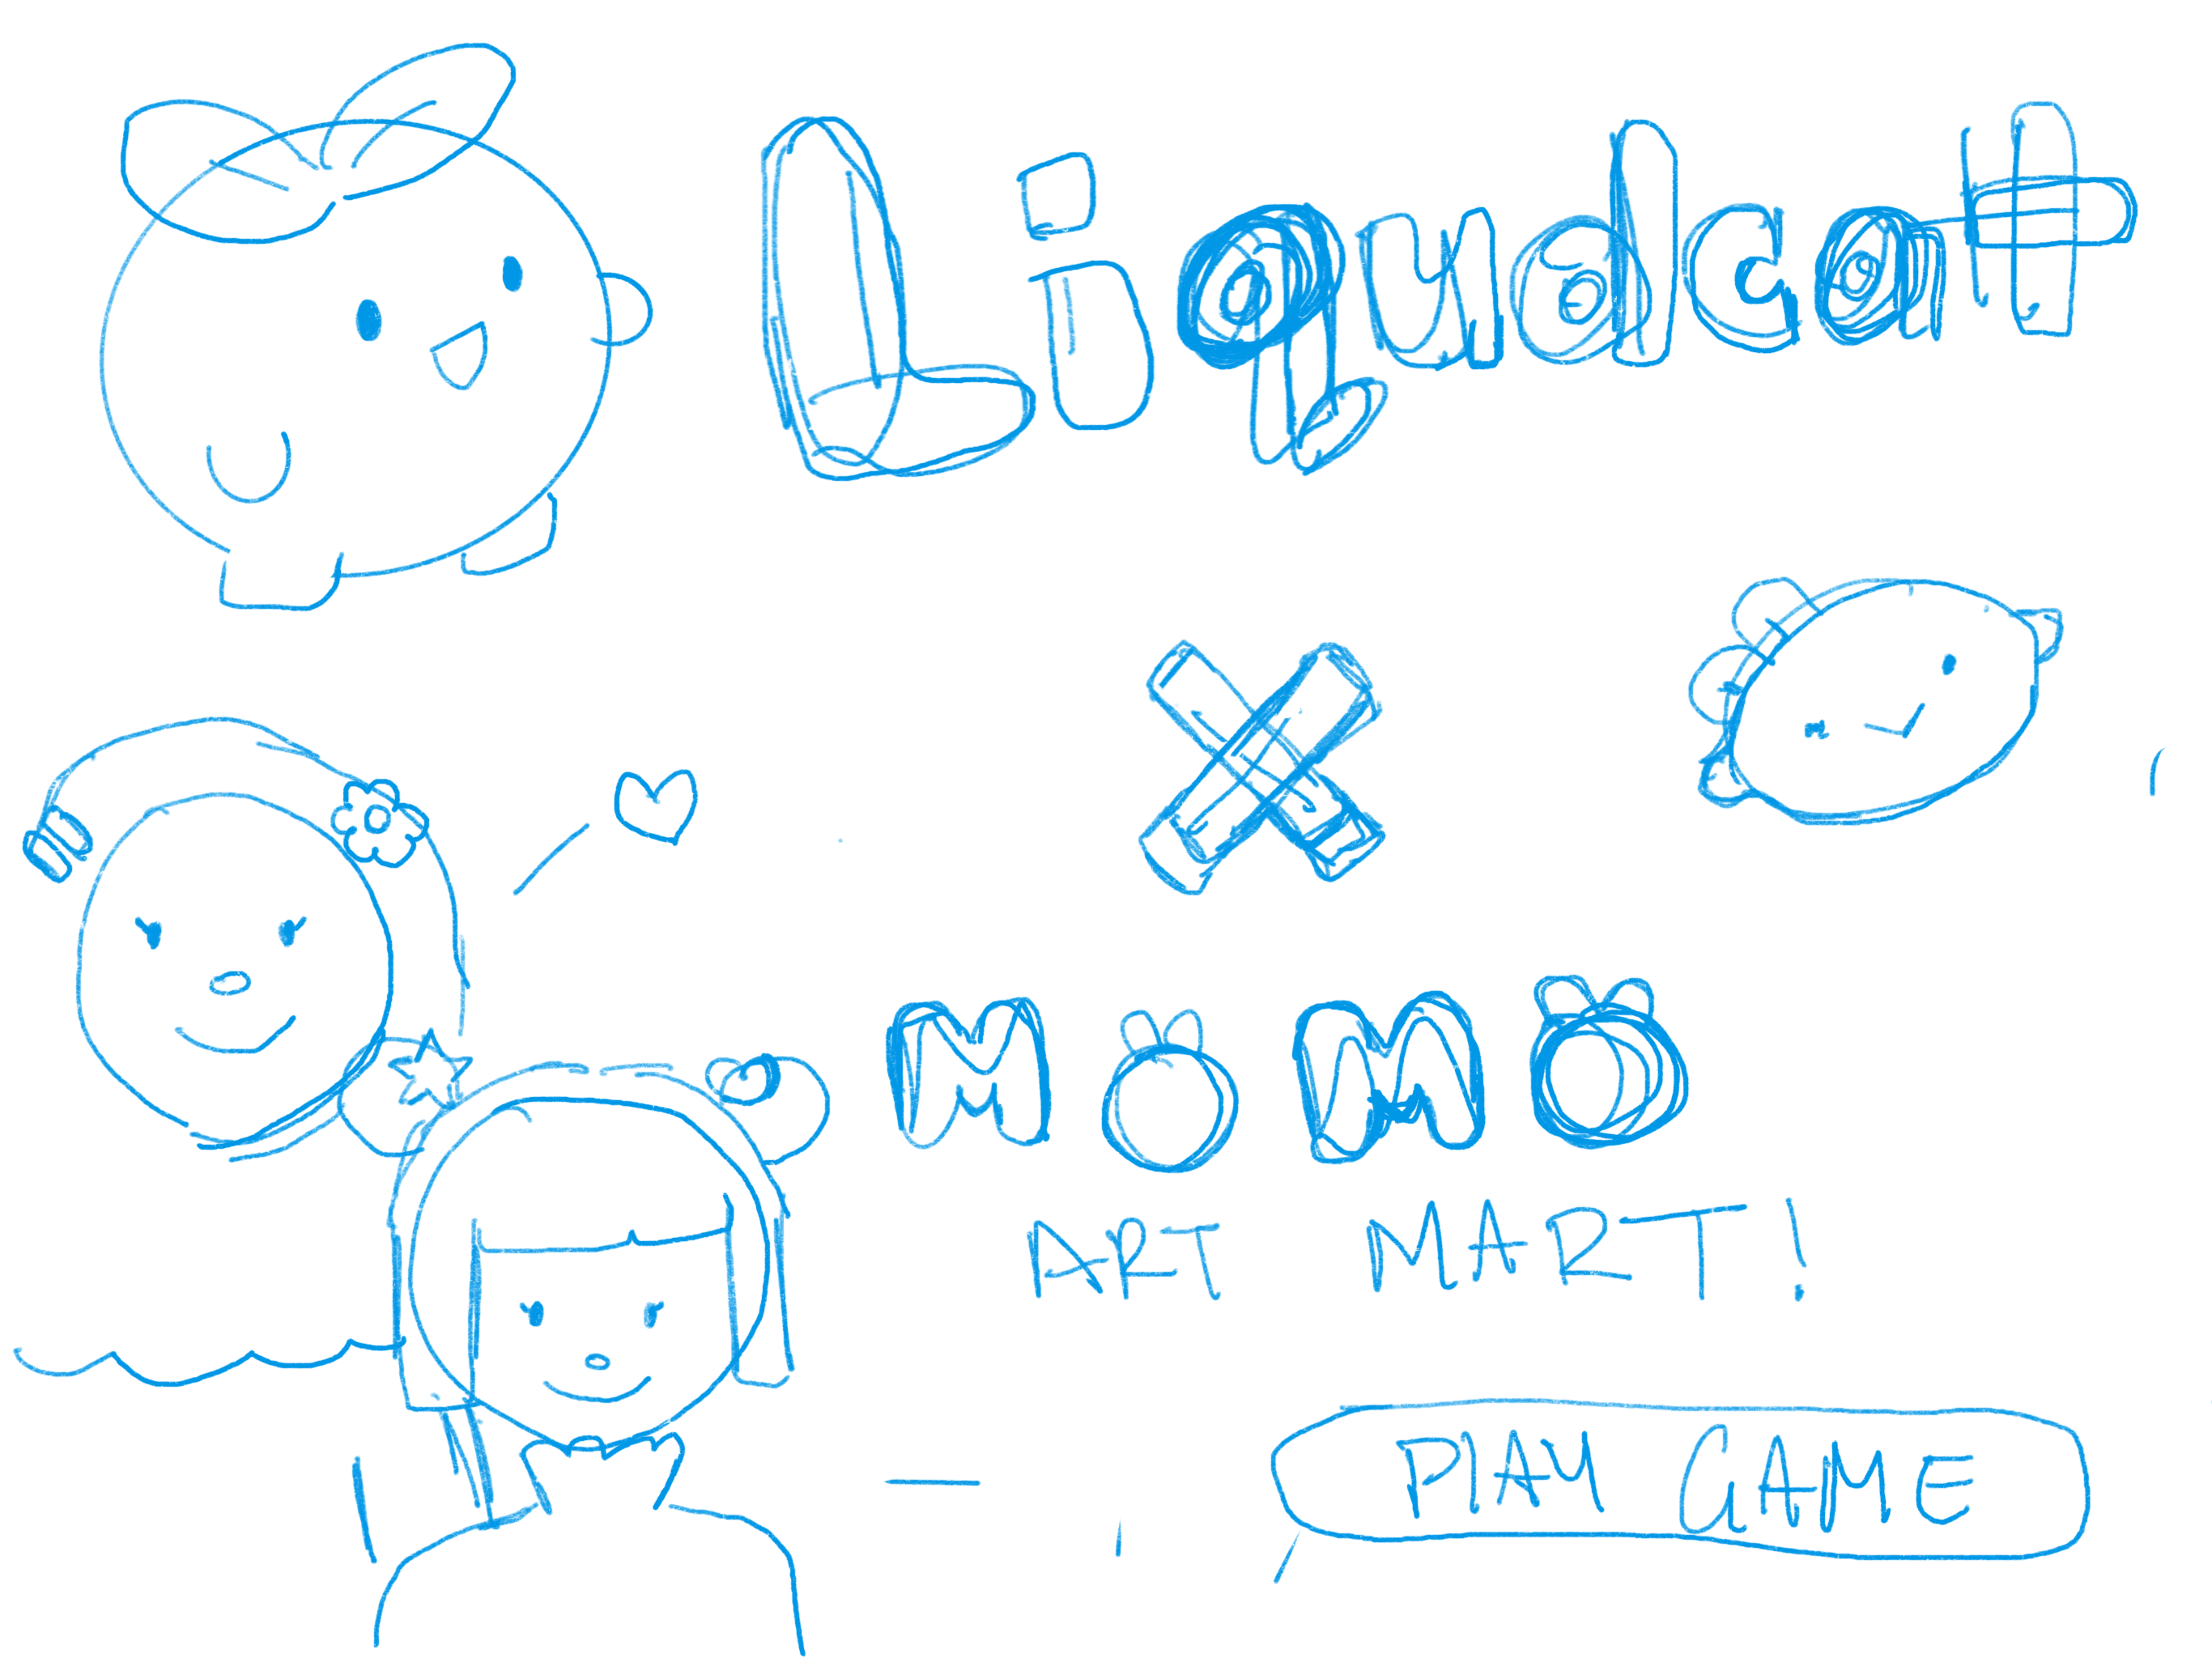 Liqudcat
X
MOMO
ART MART!
PLAY GAME